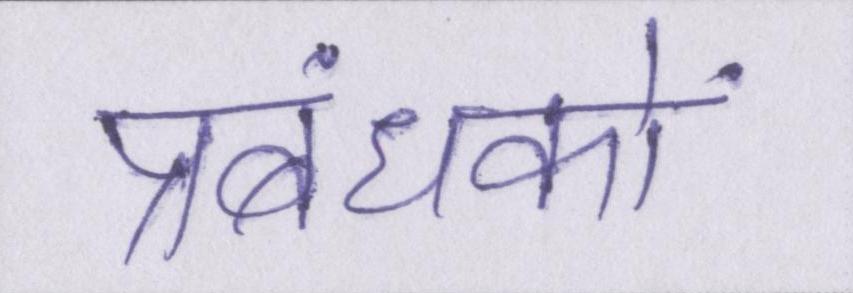 प्रबंधकों